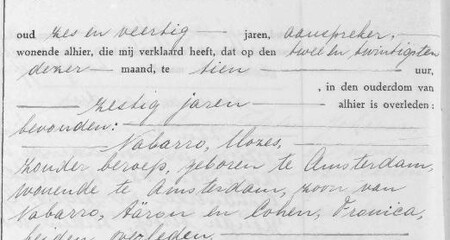 oud zes en veertig jaren, aanspreker,
wonende alhier, die mij verklaard heeft, dat op den twee en twintigsten
dezer maand, te tien uur,
, in den ouderdom van
zestig jaren alhier is overleden:
bevonden:
Nabarro, Mozes,
zonder beroep, geboren te Amsterdam,
wonende te Amsterdam, zoon van
Nabarro, Aäron en Cohen, Fronica,
beiden overleden.